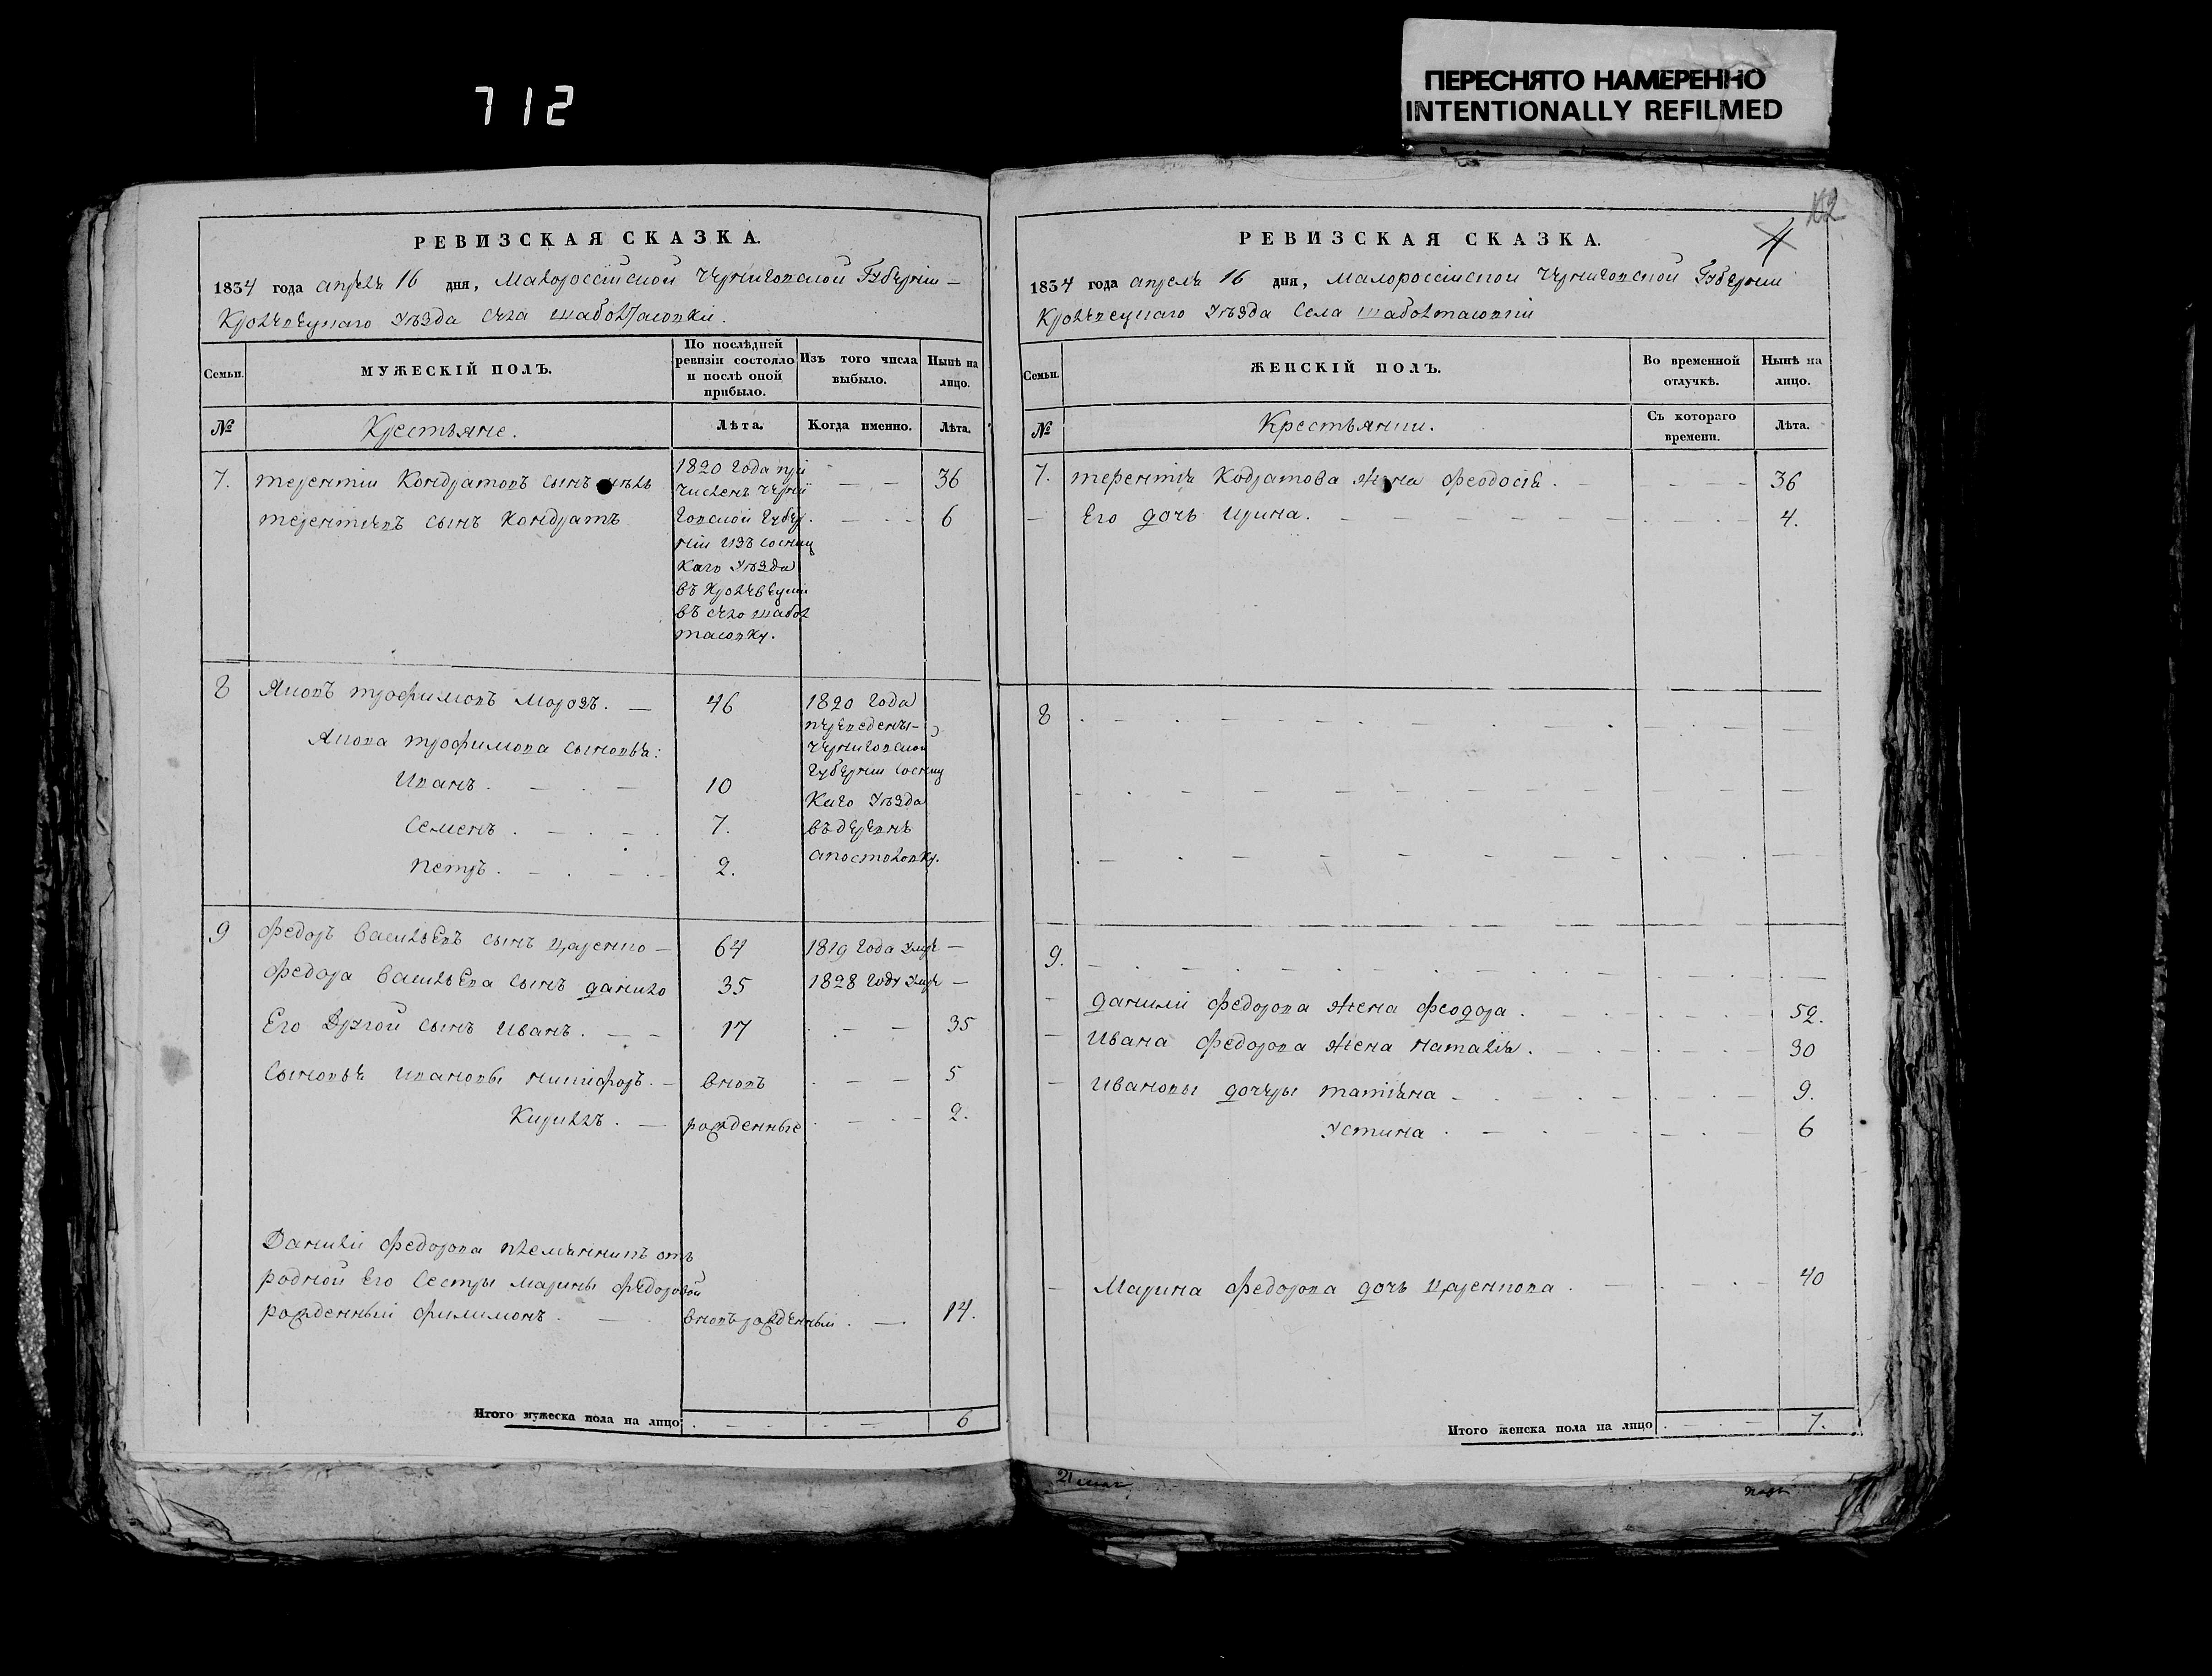 712
ПЕРЕСНЯТО НАМЕРЕННО
INTENTIONALLY REFILMED
РЕВИЗСКАЯ СКАЗКА.
1834 года апреля 16 дня, Малороссийской Черниговской Губернии —
Кролевецкаго уѣзда села Шаболтасовки.
Семьи.
МУЖЕСКІЙ ПОЛЪ.
По послѣдней
ревизіи состояло
и послѣ оной
прибыло.
Изъ того числа
выбыло.
Нынѣ на
лицо.
№
Крестьяне.
Лѣта.
Когда именно.
Лѣта.
7. терентии Кондратовъ сынъ
1820 года при
численъ Черни
36
терентиевъ сынъ Кондратъ
говской губер
6
нии изъ сосниц
каго уѣзда
въ Кролевецкии
въ село шабол
тасовку.
8 Яковъ трофимовъ Морозъ. — 46
Якова трофимова сыновья:
Иванъ. — 10
Семенъ. — 7.
Петръ. — 2.
1820 года
переведены
черниговской
губернии сосниц
каго уѣзда
въ деревнѣ
апостоловку.
9 Федоръ васильевъ сынъ Царенко — 64 1819 года умре —
Федора васильева сынъ данило 35 1828 году умре —
Его другой сынъ иванъ. — 17 — 35
сыновья ивановы никифоръ. — вновь — 5
Кирилъ. — рожденные — 2.
Данилы федорова племянникъ отъ
родной его сестры марины федоровой
рожденный филимонъ. — вновь рожденный. — 14.
Итого мужеска пола на лицо 6
102
4
РЕВИЗСКАЯ СКАЗКА.
1834 года апреля 16 дня, Малороссійской Черниговской Губернии
Кролевецкаго уѣзда Села шаболтасовки
Семьи.
ЖЕНСКІЙ ПОЛЪ.
Во временной
отлучкѣ.
Нынѣ на
лицо.
№
Крестьянки.
Съ котораго
времени.
Лѣта.
7. терентия Кодратова жена феодосія. — 36
— Его дочь ирина. — 4.
8
9.
— данилы федорова жена феодора. 52.
— ивана федорова жена наталия. 30
— ивановы дочеры татияна — 9.
устина. — 6
— Марина федорова дочь Царенкова. — 40
Итого женска пола на лицо 7.